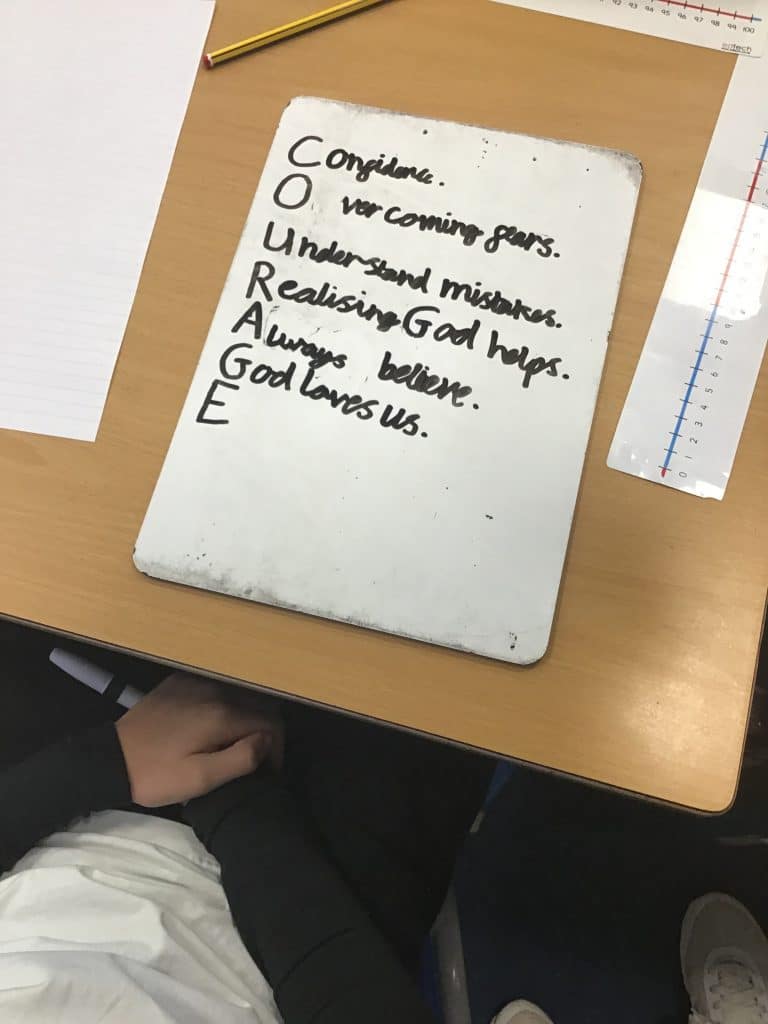 Confidence.
Overcoming fears.
Understand mistakes.
Realising God helps.
Always believe.
God loves us.
E
92 93 94 95 96 97 98 99 100
0 1 2 3 4 5 6 7 8 9